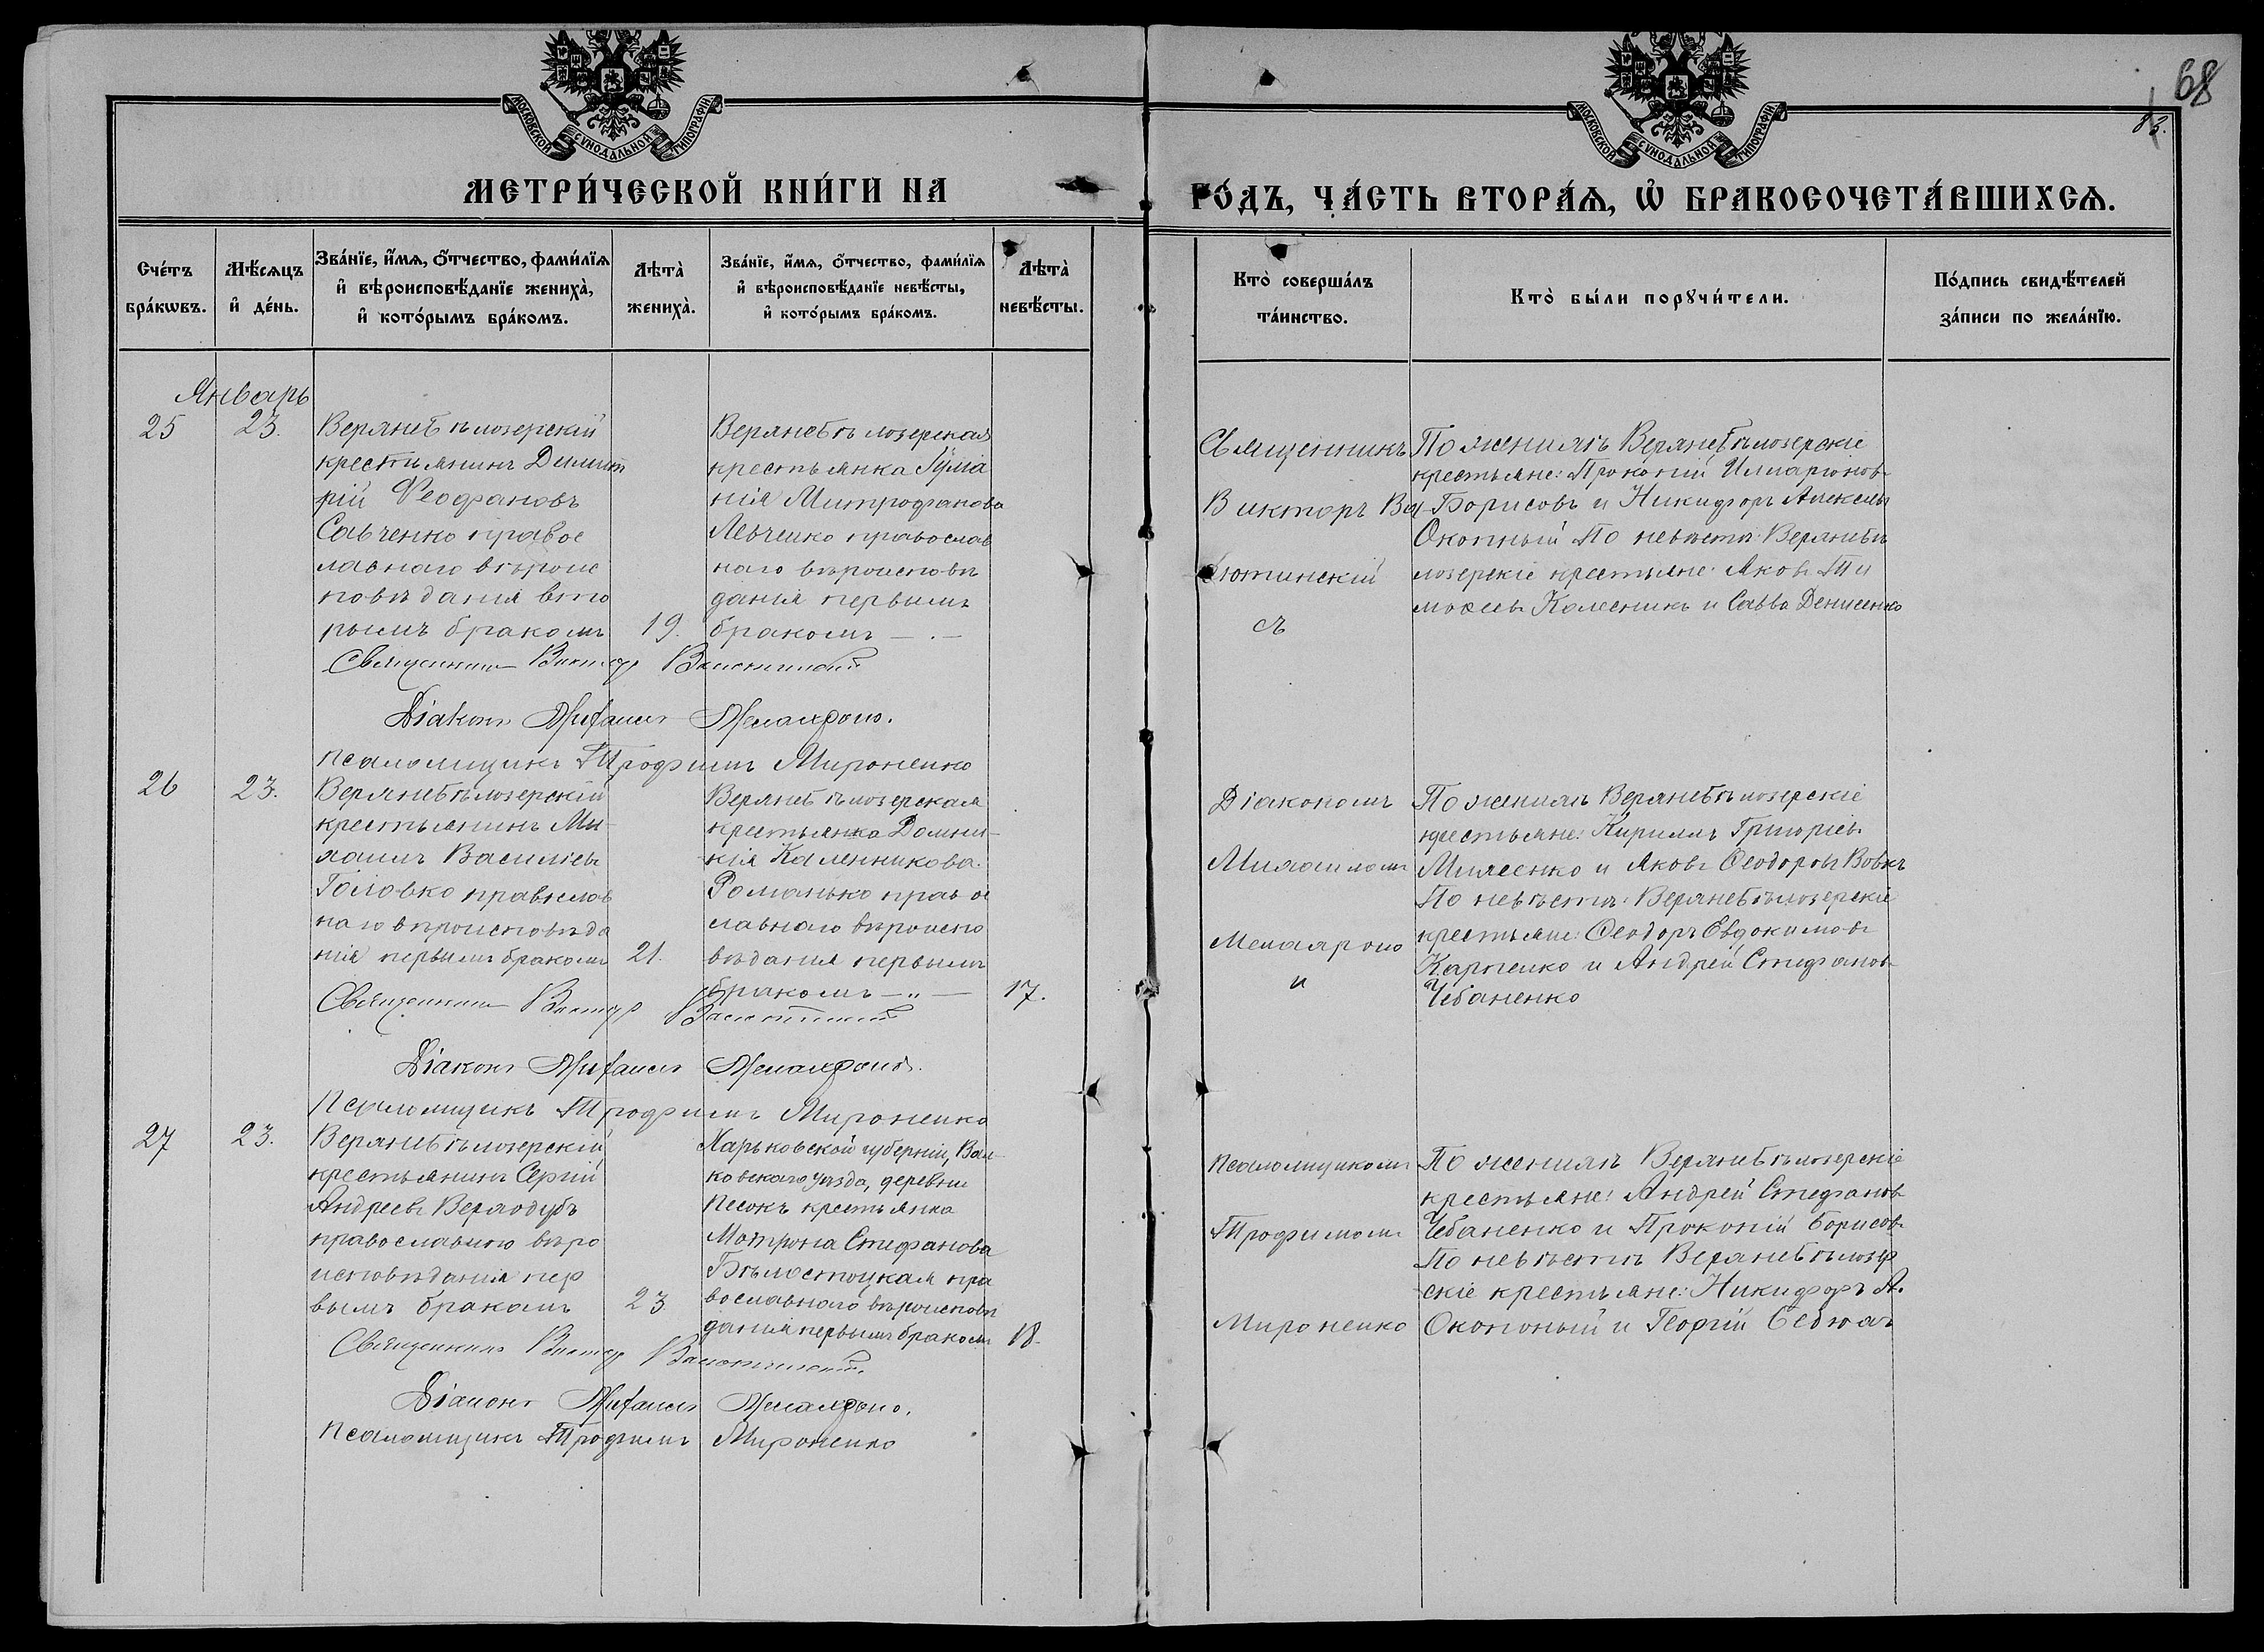 68
83.
МОСКОВСКОЙ СУНОДАЛЬНОЙ ТИПОГРАФІИ
МОСКОВСКОЙ СУНОДАЛЬНОЙ ТИПОГРАФІИ
МЕТРИ́ЧЕСКОЙ КНИ́ГИ НА
ГО́ДЪ, ЧА́СТЬ ВТОРА́Ѧ, Ѡ҆ БРАКОСОЧЕТА́ВШИХСѦ.
Сче́тъ бра́кѡвъ.
Мѣ́сѧцъ и҆ де́нь.
Зва́нїе, и҆́мѧ, о҆́тчество, фами́лїѧ
и҆ вѣроисповѣ́данїе жениха̀,
и҆ кото́рымъ бра́комъ.
Лѣта̀ жениха̀.
Зва́нїе, и҆́мѧ, о҆́тчество, фами́лїѧ
и҆ вѣроисповѣ́данїе невѣ́сты,
и҆ кото́рымъ бра́комъ.
Лѣта̀ невѣ́сты.
Кто̀ соверша́лъ
та́инство.
Кто̀ бы́ли порꙋчи́тели.
По́дпись свидѣ́телей
за́писи по жела́нїю.
Январь
25
23.
Верхнебѣлозерскій
крестьянинъ Димит
рій Ѳеофановъ
Савченко правос
лавнаго вѣроис
повѣданія вто
рымъ бракомъ
19.
Верхнебѣлозерская
крестьянка Гулiа
нія Митрофанова
Левченко православ
наго вѣроисповѣ
данія первымъ
бракомъ — . —
Священникъ
Викторъ Ва
сютинскій
съ
По женихѣ Верхнебѣлозерскіе
крестьяне: Прокопій Иларіоновъ
Борисовъ и Никифоръ Алексѣевъ
Окопный По невѣстѣ: Верхнебѣ
лозерскіе крестьяне: Яковъ Ти
моѳеевъ Колесникъ и Савва Денисенко
Священникъ Викторъ Васютинскій
Діаконъ Михаилъ
Псаломщикъ Трофимъ Мироненко
26
23.
Верхнебѣлозерскій
крестьянинъ Ми-
хаилъ Василіевъ
Головко православ
наго вѣроисповѣда
нія первымъ бракомъ
21.
Верхнебѣлозерская
крестьянка Домни-
кія Каленникова
Романько правос
лавнаго вѣроиспо
вѣданія первымъ
бракомъ — „ —
17.
Діакономъ
Михаиломъ
и
По женихѣ Верхнебѣлозерскіе
крестьяне: Кириллъ Григоріевъ
и Яковъ Ѳеодоровъ Вовкъ
По невѣстѣ: Верхнебѣлозерскіе
крестьяне: Ѳеодоръ Евдокимовъ
Карпенко и Андрей Стефановъ
Чебаненко
Священникъ Викторъ Васютинскій
Діаконъ Михаилъ
Псаломщикъ Трофимъ Мироненко
27
23.
Верхнебѣлозерскій
крестьянинъ Сергій
Андреевъ Верходубъ
православнаго вѣро
исповѣданія пер
вымъ бракомъ
23
Харьковской губерніи, Вал-
ковскаго уѣзда, деревни
Песокъ крестьянка
Матрона Стефанова
Бѣлостоцкая пра
вославнаго вѣроисповѣ
данія первымъ бракомъ
18.
Псаломщикомъ
Трофимомъ
Мироненко
По женихѣ Верхнебѣлозерскіе
крестьяне: Андрей Стефановъ
Чебаненко и Прокопій Борисовъ
По невѣстѣ Верхнебѣлозер
скіе крестьяне: Никифоръ А.
Окопный и Георгій
Священникъ Викторъ Васютинскій
Діаконъ Михаилъ
Псаломщикъ Трофимъ Мироненко